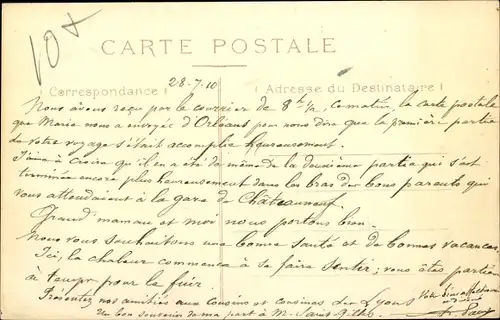 10 x
CARTE POSTALE
28-7-10
(Correspondance)
Adresse du Destinataire
Nous avons reçu par le courrier de 8h ½, ce matin, la carte postale
que Marie nous a envoyée d'Orléans pour nous dire que la première partie
de votre voyage s'était accomplie heureusement.
J'aime à croire qu'il en a été de même de la deuxième partie qui s'est
terminée encore plus heureusement dans les bras des bons parents qui
vous attendaient à la gare de Châteauneuf.
Grand'maman et moi nous portons bien.
Nous vous souhaitons une bonne santé et de bonnes vacances
Ici, la chaleur commence à se faire sentir; vous êtes parties
à temps pour la fuir.
Présentez nos amitiés aux cousins et cousines des Lyons
Un bon souvenir de ma part à Mr
Votre